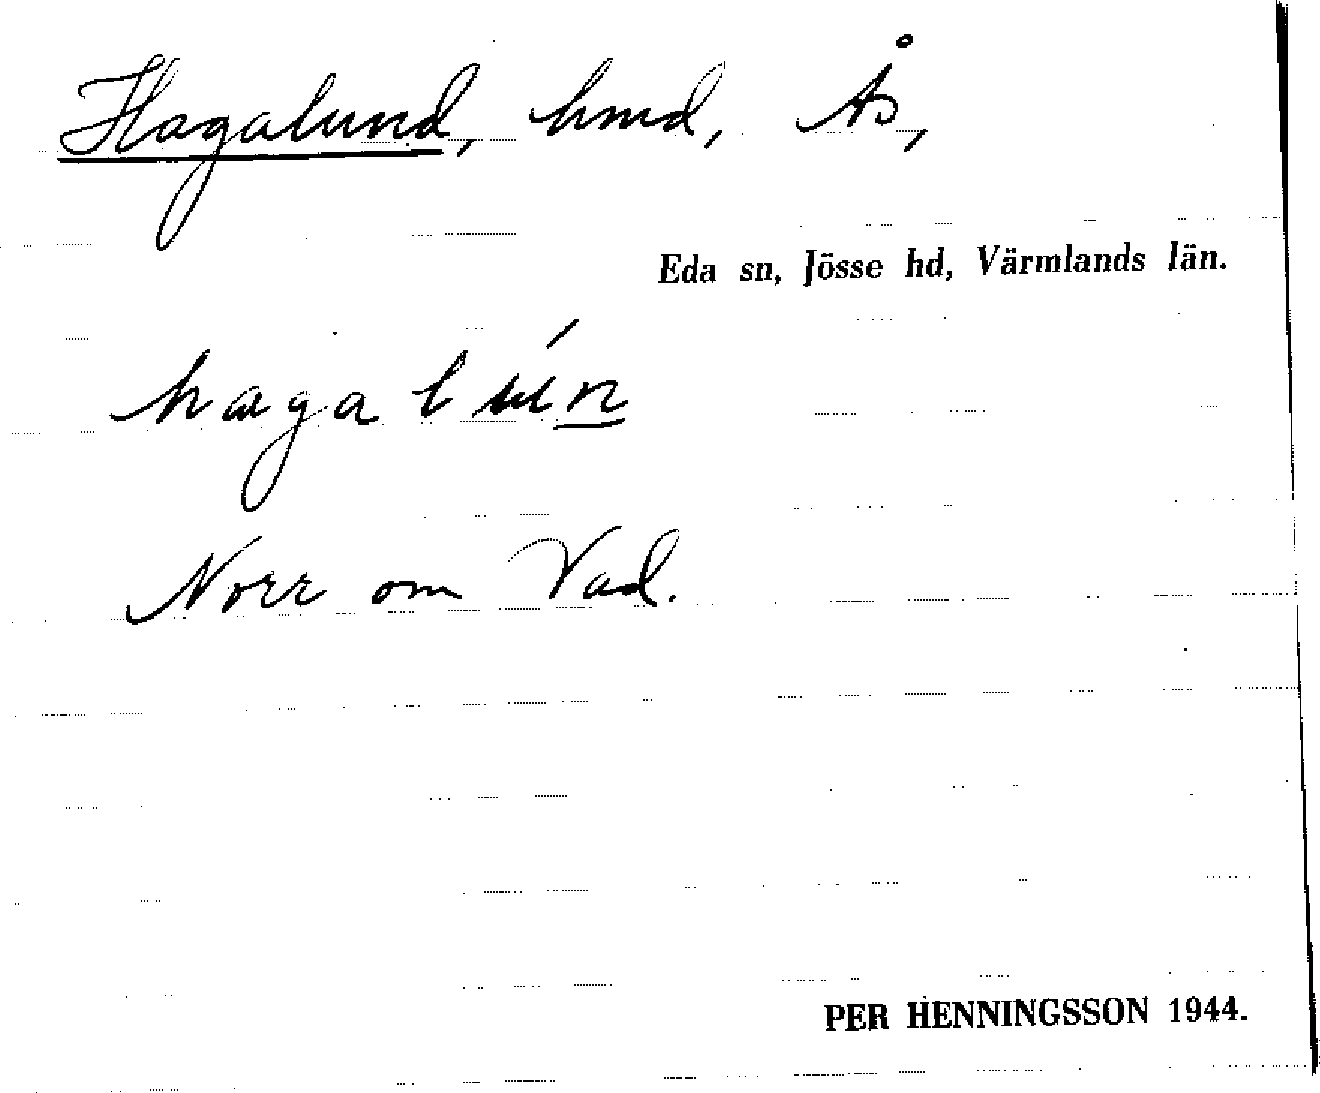 Hagalund, hmd, Ås,
Eda sn, Jösse hd, Värmlands län.
Norr om Vad.
PER HENNINGSSON 1944.